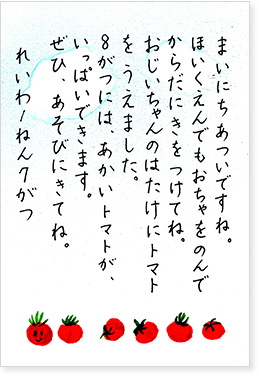 まいにちあついですね。
ほいくえんでもおちゃをのんで
からだにきをつけてね。
おじいちゃんのはたけにトマト
をうえました。
8がつには、あかいトマトが、
いっぱいできます。
ぜひ、あそびにきてね。
れいわ1ねん7がつ